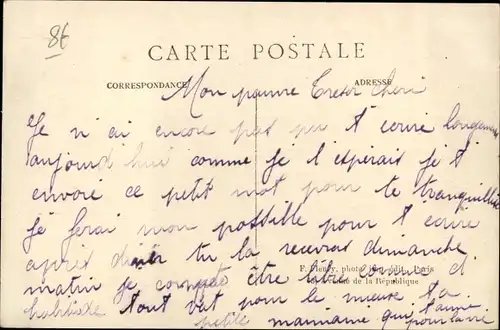 8€
CARTE POSTALE
CORRESPONDANCE
ADRESSE
Mon pauvre Tresor cheri
Je n'ai encore pas pu t ecrire longement
aujourd hui comme je l'espérais je t
envoie ce petit mot pour te tranquillise
je ferai mon possible pour t ecrire
apres tu la recevras dimanche
matin je compte être libre comme d
habitude tout vat pour le mieux ta
petite mamame qui t'aime
pour la vie
P. Fleury, phot. édit. Paris
de la République